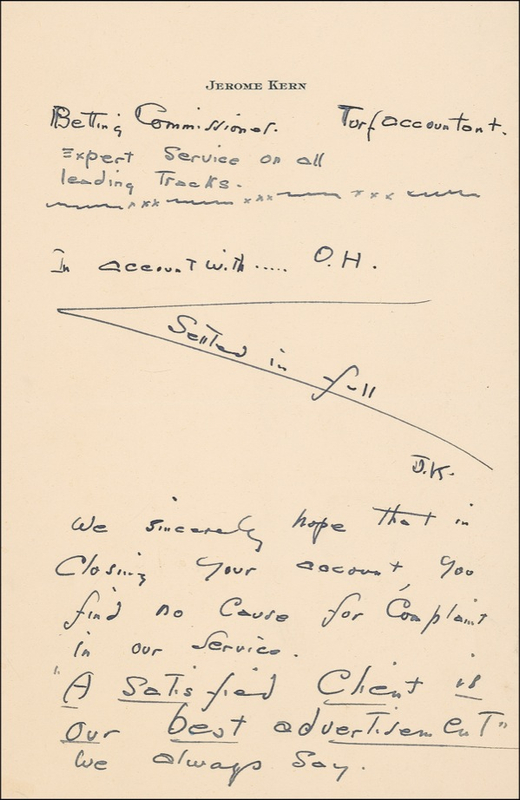 JEROME KERN
Betting Commissioner. Turf accountant.
Expert Service on all
leading Tracks.
xxx xxx x x x
In account with..... O.H.
Settled in full
J.K.
We sincerely hope that in
Closing your account, you
find no Cause for Complaint
in our Service.
"A Satisfied Client is
Our best advertisement"
We always Say.